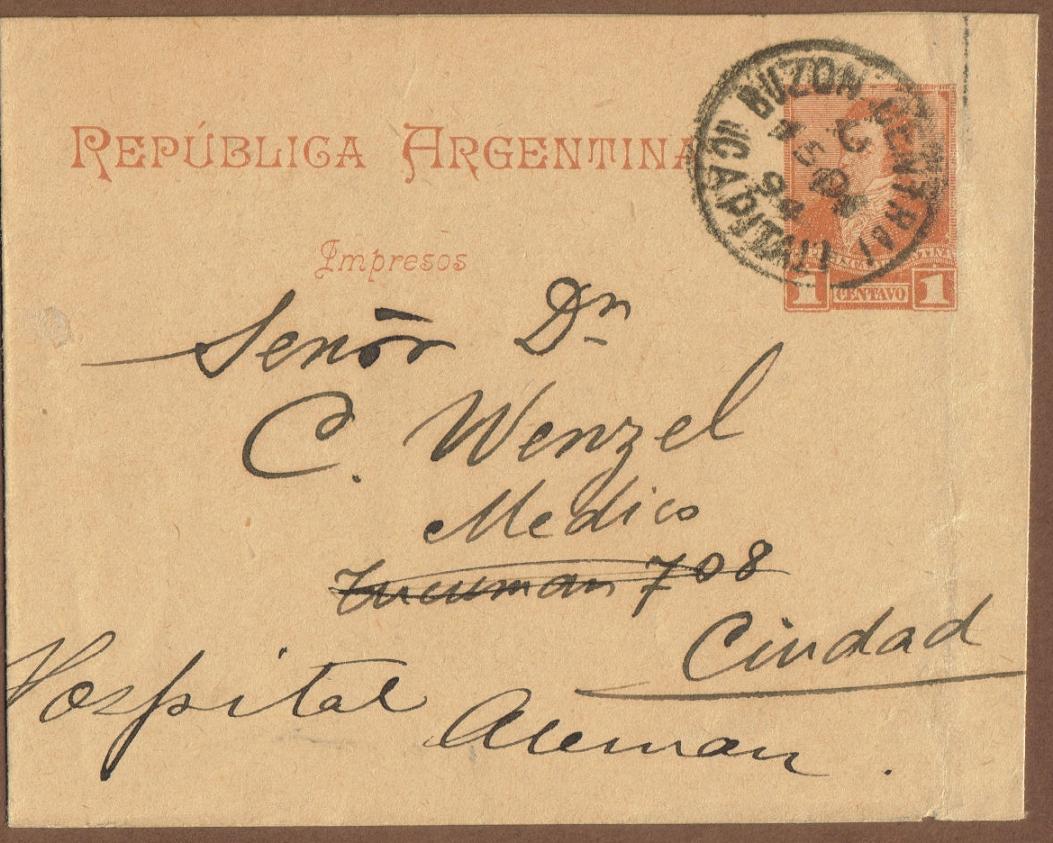 REPÚBLICA ARGENTINA
Impresos
BUZON CENTRAL
CAPITAL
94
1 CENTAVO 1
Señor Dn
C. Wenzel
Medico
Tucuman 708
Ciudad
Hospital Aleman.